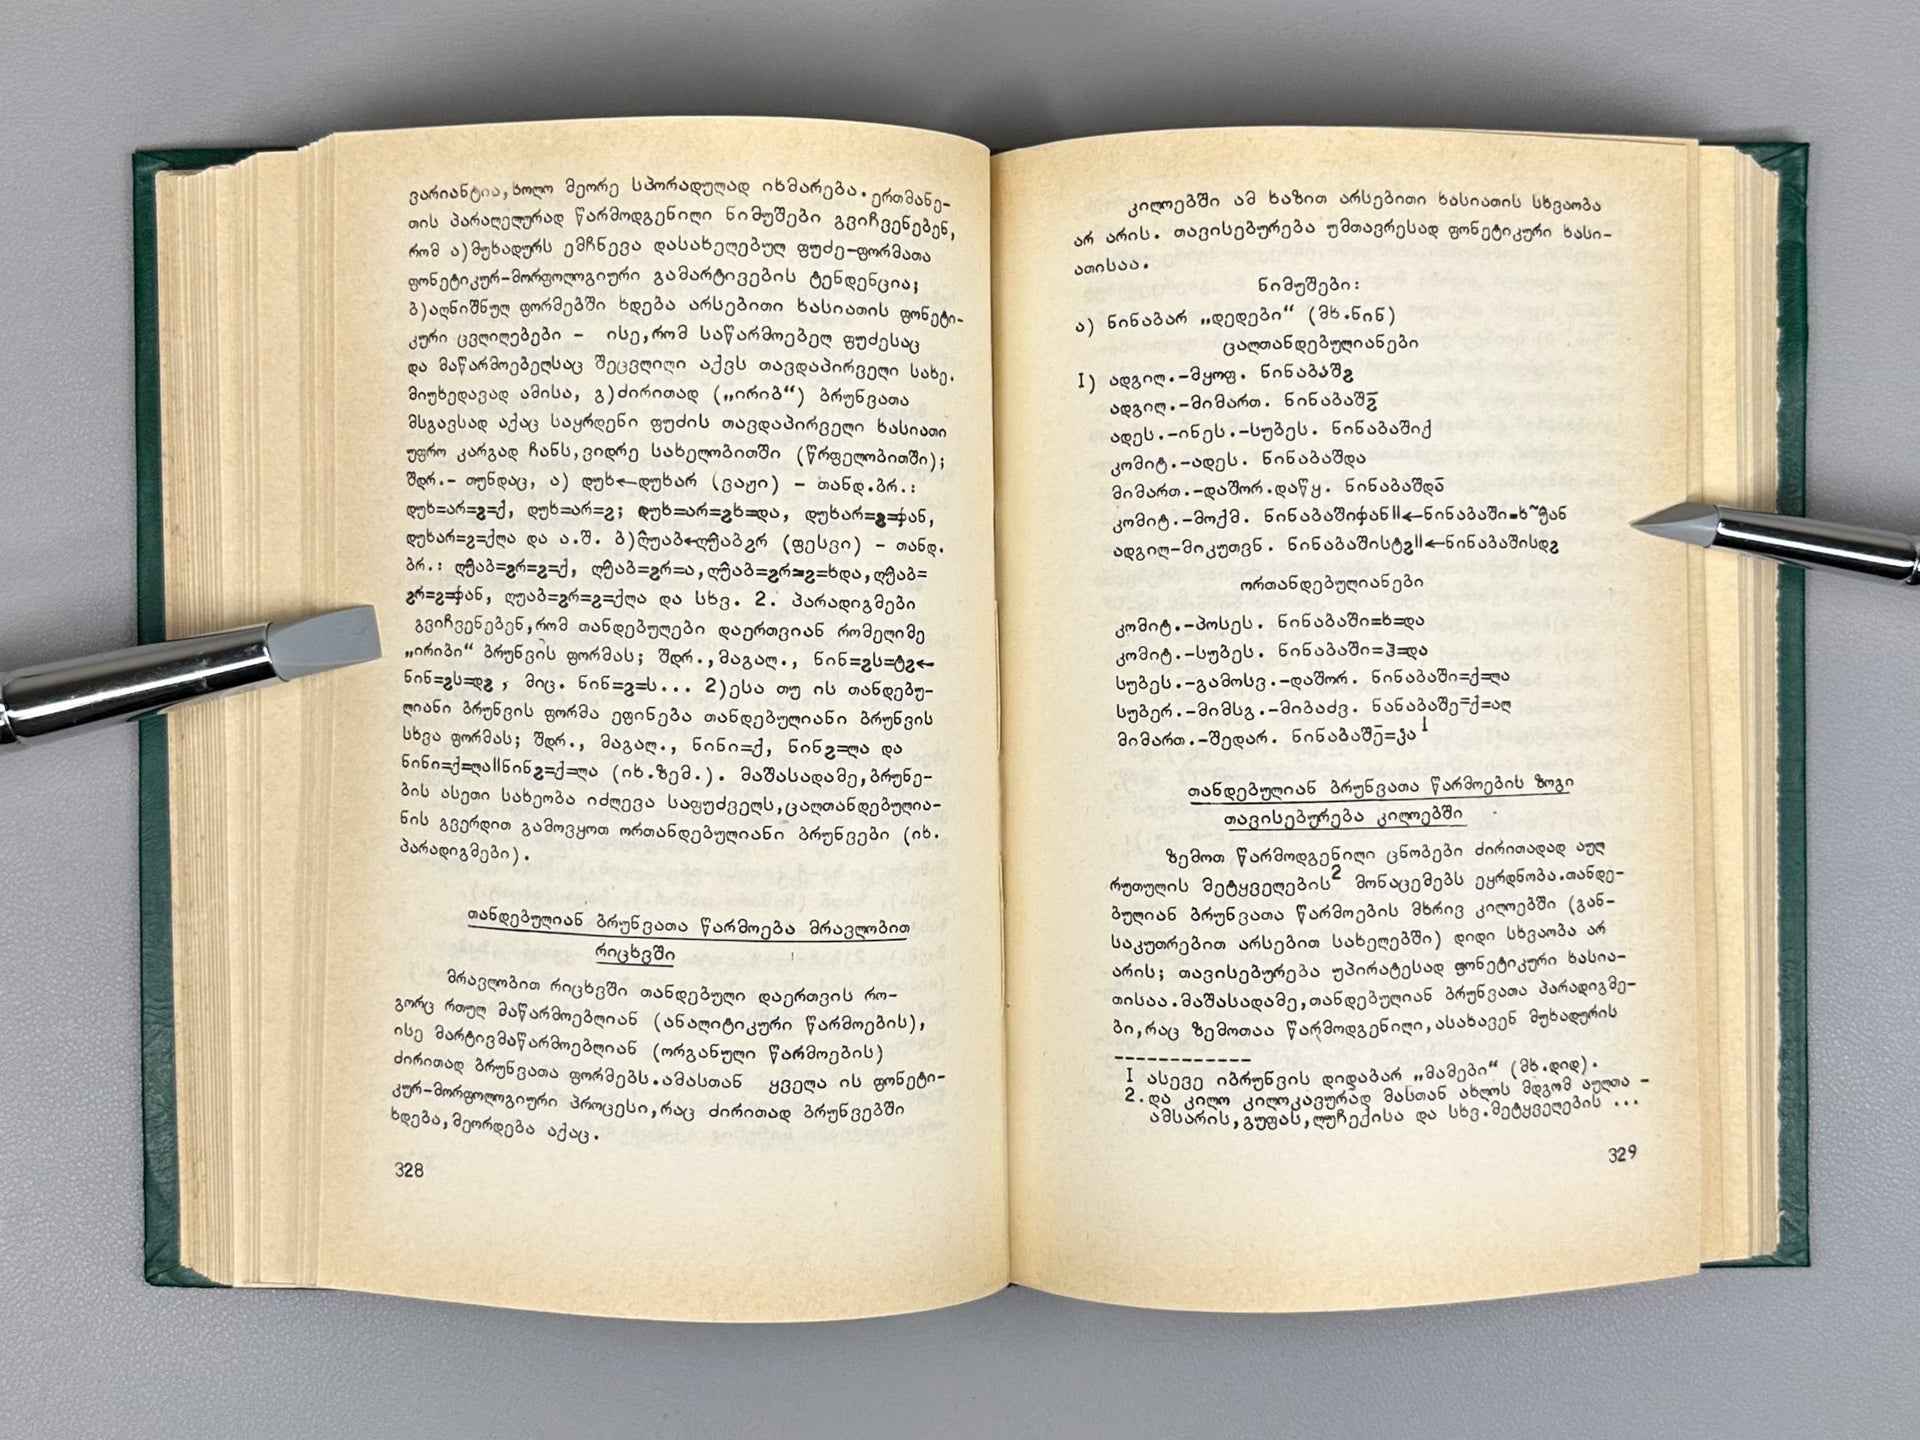 ვარიანტია, ხოლო მეორე სპორადულად იხმარება. ერთმანე-
თის პარალელურად წარმოდგენილი ნიმუშები გვიჩვენებენ,
რომ ა)მუხადურს ემჩნევა დასახელებულ ფუძე-ფორმათა
ფონეტიკურ-მორფოლოგიური გამარტივების ტენდენცია;
ბ)აღნიშნულ ფორმებში ხდება არსებითი ხასიათის ფონეტი-
კური ცვლილებები - ისე,რომ საწარმოებელ ფუძესაც
და მაწარმოებელსაც შეცვლილი აქვს თავდაპირველი სახე.
მიუხედავად ამისა, გ)ძირითად („ირიბ“) ბრუნვათა
მსგავსად აქაც საყრდენი ფუძის თავდაპირველი ხასიათი
უფრო კარგად ჩანს,ვიდრე სახელობითში (წრფელობითში);
შდრ.- თუნდაც, ა) დუხ←დუხარ (ვაჟი) - თანდ.ბრ.:
დუხ=არ=ჷ=ქ, დუხ=არ=ჷ; დუხ=არ=ჷხ=და, დუხარ=ჷ=ჶან,
დუხარ=ჷ=ქლა და ა.შ. ბ)ღუ̂აბ←ღუ̂აბჷრ (ფესვი) - თანდ.
ბრ.: ღუ̂აბ=ჷრ=ჷ=ქ, ღუ̂აბ=ჷრ=ა,ღუ̂აბ=ჷრ=ჷ=ხდა,ღუ̂აბ=
ჷრ=ჷ=ჶან, ღუაბ=ჷრ=ჷ=ქლა და სხვ. 2. პარადიგმები
გვიჩვენებენ,რომ თანდებულები დაერთვიან რომელიმე
„ირიბი“ ბრუნვის ფორმას; შდრ.,მაგალ., ნინ=ჷს=ტჷ←
ნინ=ჷს=დჷ, მიც. ნინ=ჷ=ს... 2)ესა თუ ის თანდებუ-
ლიანი ბრუნვის ფორმა ეფინება თანდებულიანი ბრუნვის
სხვა ფორმას; შდრ., მაგალ., ნინი=ქ, ნინჷ=ლა და
ნინი=ქ=ლა||ნინჷ=ქ=ლა (იხ.ზემ.). მაშასადამე,ბრუნე-
ბის ასეთი სახეობა იძლევა საფუძველს,ცალთანდებულია-
ნის გვერდით გამოვყოთ ორთანდებულიანი ბრუნვები (იხ.
პარადიგმები).
თანდებულიან ბრუნვათა წარმოება მრავლობით
რიცხვში
მრავლობით რიცხვში თანდებული დაერთვის რო-
გორც რთულ მაწარმოებლიან (ანალიტიკური წარმოების),
ისე მარტივმაწარმოებლიან (ორგანული წარმოების)
ძირითად ბრუნვათა ფორმებს.ამასთან ყველა ის ფონეტი-
კურ-მორფოლოგიური პროცესი,რაც ძირითად ბრუნვებში
ხდება,მეორდება აქაც.
328
კილოებში ამ ხაზით არსებითი ხასიათის სხვაობა
არ არის. თავისებურება უმთავრესად ფონეტიკური ხასი-
ათისაა.
ნიმუშები:
ა) ნინაბარ „დედები“ (მხ.ნინ)
ცალთანდებულიანები
I) ადგილ.-მყოფ. ნინაბაშჷ
ადგილ.-მიმართ. ნინაბაშჷ̄
ადეს.-ინეს.-სუბეს. ნინაბაშიქ
კომიტ.-ადეს. ნინაბაშდა
მიმართ.-დაშორ.დაწყ. ნინაბაშდა̄
კომიტ.-მოქმ. ნინაბაშიჶან||←ნინაბაში=ხ~ჟან
ადგილ-მიკუთვნ. ნინაბაშისტჷ||←ნინაბაშისდჷ
ორთანდებულიანები
კომიტ.-პოსეს. ნინაბაში=ხ=და
კომიტ.-სუბეს. ნინაბაში=ჰ=და
სუბეს.-გამოსვ.-დაშორ. ნინაბაში=ქ=ლა
სუბერ.-მიმსგ.-მიბაძვ. ნანაბაშე=ქ=ალ
მიმართ.-შედარ. ნინაბაშე̄=კა¹
თანდებულიან ბრუნვათა წარმოების ზოგი
თავისებურება კილოებში
ზემოთ წარმოდგენილი ცნობები ძირითადად აულ
რუთულის მეტყველების² მონაცემებს ეყრდნობა.თანდე-
ბულიან ბრუნვათა წარმოების მხრივ კილოებში (გან-
საკუთრებით არსებით სახელებში) დიდი სხვაობა არ
არის; თავისებურება უპირატესად ფონეტიკური ხასია-
თისაა.მაშასადამე,თანდებულიან ბრუნვათა პარადიგმე-
ბი,რაც ზემოთაა წარმოდგენილი,ასახავენ მუხადურის
I ასევე იბრუნვის დიდაბარ „მამები“ (მხ.დიდ).
2.და კილო კილოკავურად მასთან ახლოს მდგომ აულთა -
ამსარის,გუფას,ლუჩექისა და სხვ.მეტყველების ...
329